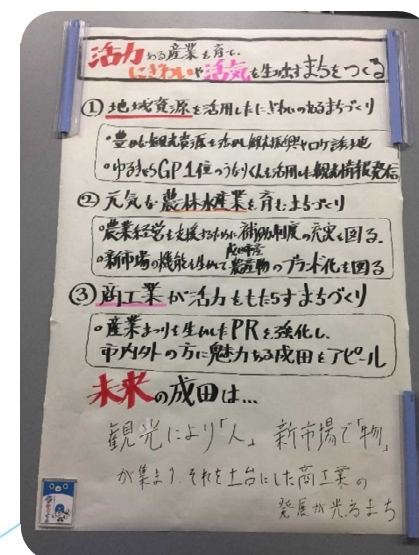 活力ある産業を育て、
にぎわいや活気を生み出すまちをつくる
①地域資源を活用したにぎわいのあるまちづくり
•豊かな観光資源を活かし観光振興やロケ誘致
•ゆるキャラGP1位のうなりくんを活用した観光情報発信
②元気な農林水産業を育むまちづくり
•農業経営を支援するために補助制度の充実を図る。
成田市産
•新市場の機能を生かして農産物のブランド化を図る
③商工業が活力をもたらすまちづくり
•産業まつりを生かしたPRを強化し、
市内外の方に魅力ある成田をアピール
未来の成田は…
観光により「人」 新市場で「物」
が集まり、それを土台にした商工業の
発展が光るまち